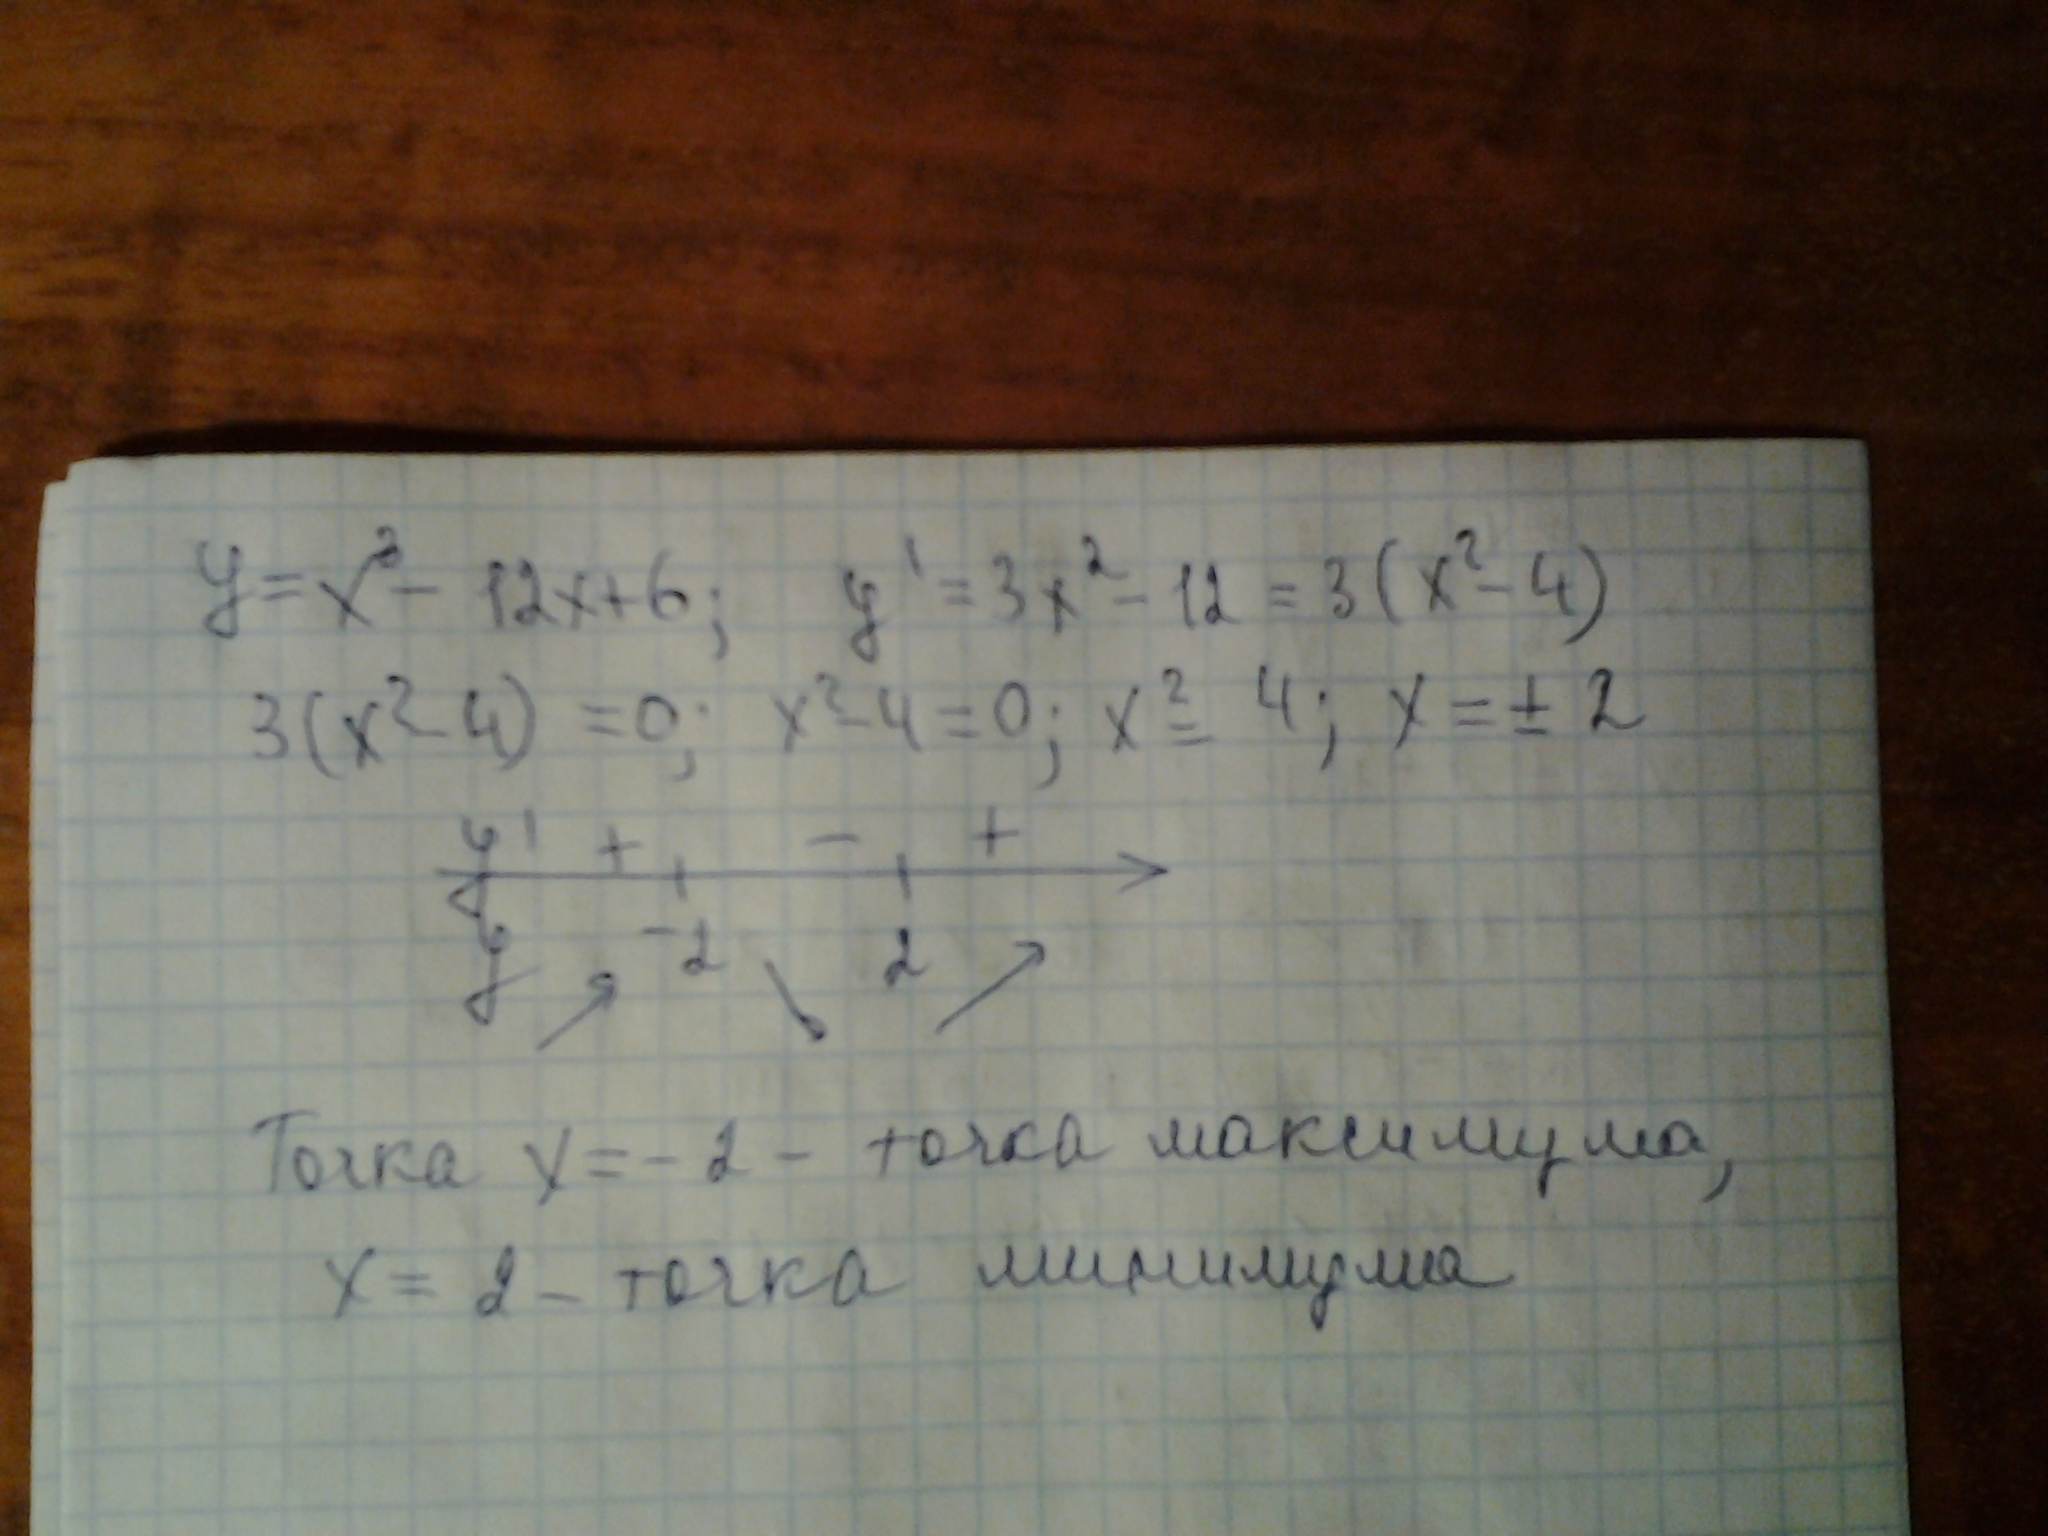 y = x³ - 12x + 6; y' = 3x² - 12 = 3(x² - 4)
3(x² - 4) = 0; x² - 4 = 0; x² = 4; x = ± 2
y' + - +
-2 2
y
Точка x = -2 - точка максимума,
x = 2 - точка минимума